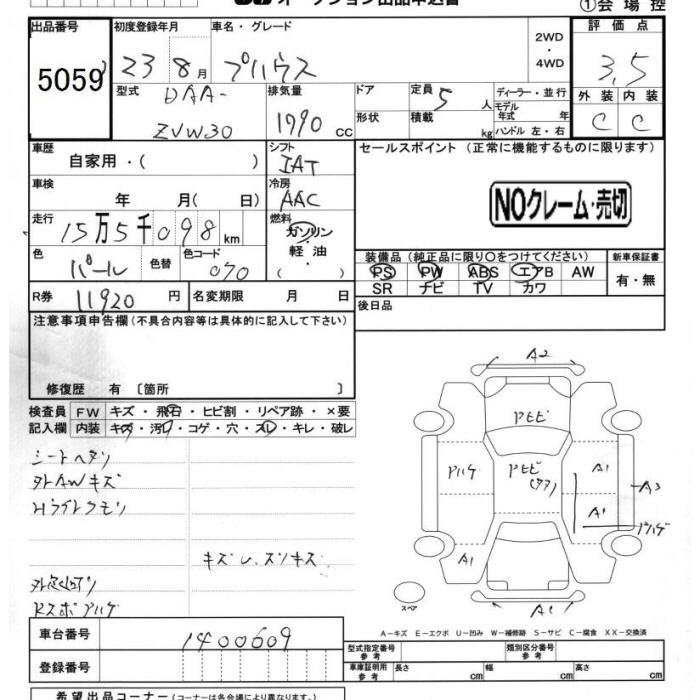 オークション出品申込書
①会場控
出品番号 初度登録年月 車名・グレード 2WD ・ 4WD 評価点
5059 23 8月 プリウス 3.5
外装 内装
C C
型式 DAA- ZVW30
排気量 1790 cc
ドア 形状
定員 5 人
積載 kg
ディーラー・並行
モデル年式 年
ハンドル 左・右
車歴 自家用・( )
シフト IAT
セールスポイント (正常に機能するものに限ります)
車検 年 月( 日)
冷房 AAC
NOクレーム・売切
走行 15万5千098km
燃料 ガソリン・軽・油・( )
色 パール 色替 色コード 070
装備品 (純正品に限り○をつけてください) 新車保証書
PS PW ABS エアB AW 有・無
SR ナビ TV カワ
R券 11920 円 名変期限 月 日
後日品
注意事項申告欄(不具合内容等は具体的に記入して下さい)
修復歴 有 〔箇所 〕
検査員 FW キズ・飛石・ヒビ割・リペア跡・×要
記入欄 内装 キズ・汚レ・コゲ・穴・スレ・キレ・破レ
シートヘタリ
外AWキズ
Hライトクモリ
キズU.スリキズ
RスポアハゲA2
Pモビ
アハゲ
PモビA1
A3
A1
A1
A1
スペア
A-キズ E-エクボ U-凹み W-補修跡 S-サビ C-腐食 XX-交換済
車台番号 1400609
登録番号
型式指定番号 参考 類別区分番号 参考
車庫証明用 参考 長さ cm 幅 cm 高さ cm
希望出品コーナー(コーナーは各会場により異なります。)